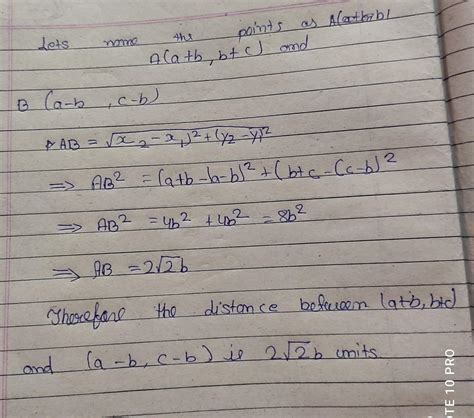 Lets name the points as
A(a+b, b+c) and
B (a-b , c-b)
AB = √x₂-x₁)²+(y₂-y)²
⇒ AB² = (a+b-a-b)²+(b+c-(c-b)²
⇒ AB² = 4b² + 4b² = 8b²
⇒ AB = 2√2 b
Therefore the distance between (a+b, b+c)
and (a-b, c-b) is 2√2 b units
TE 10 PRO